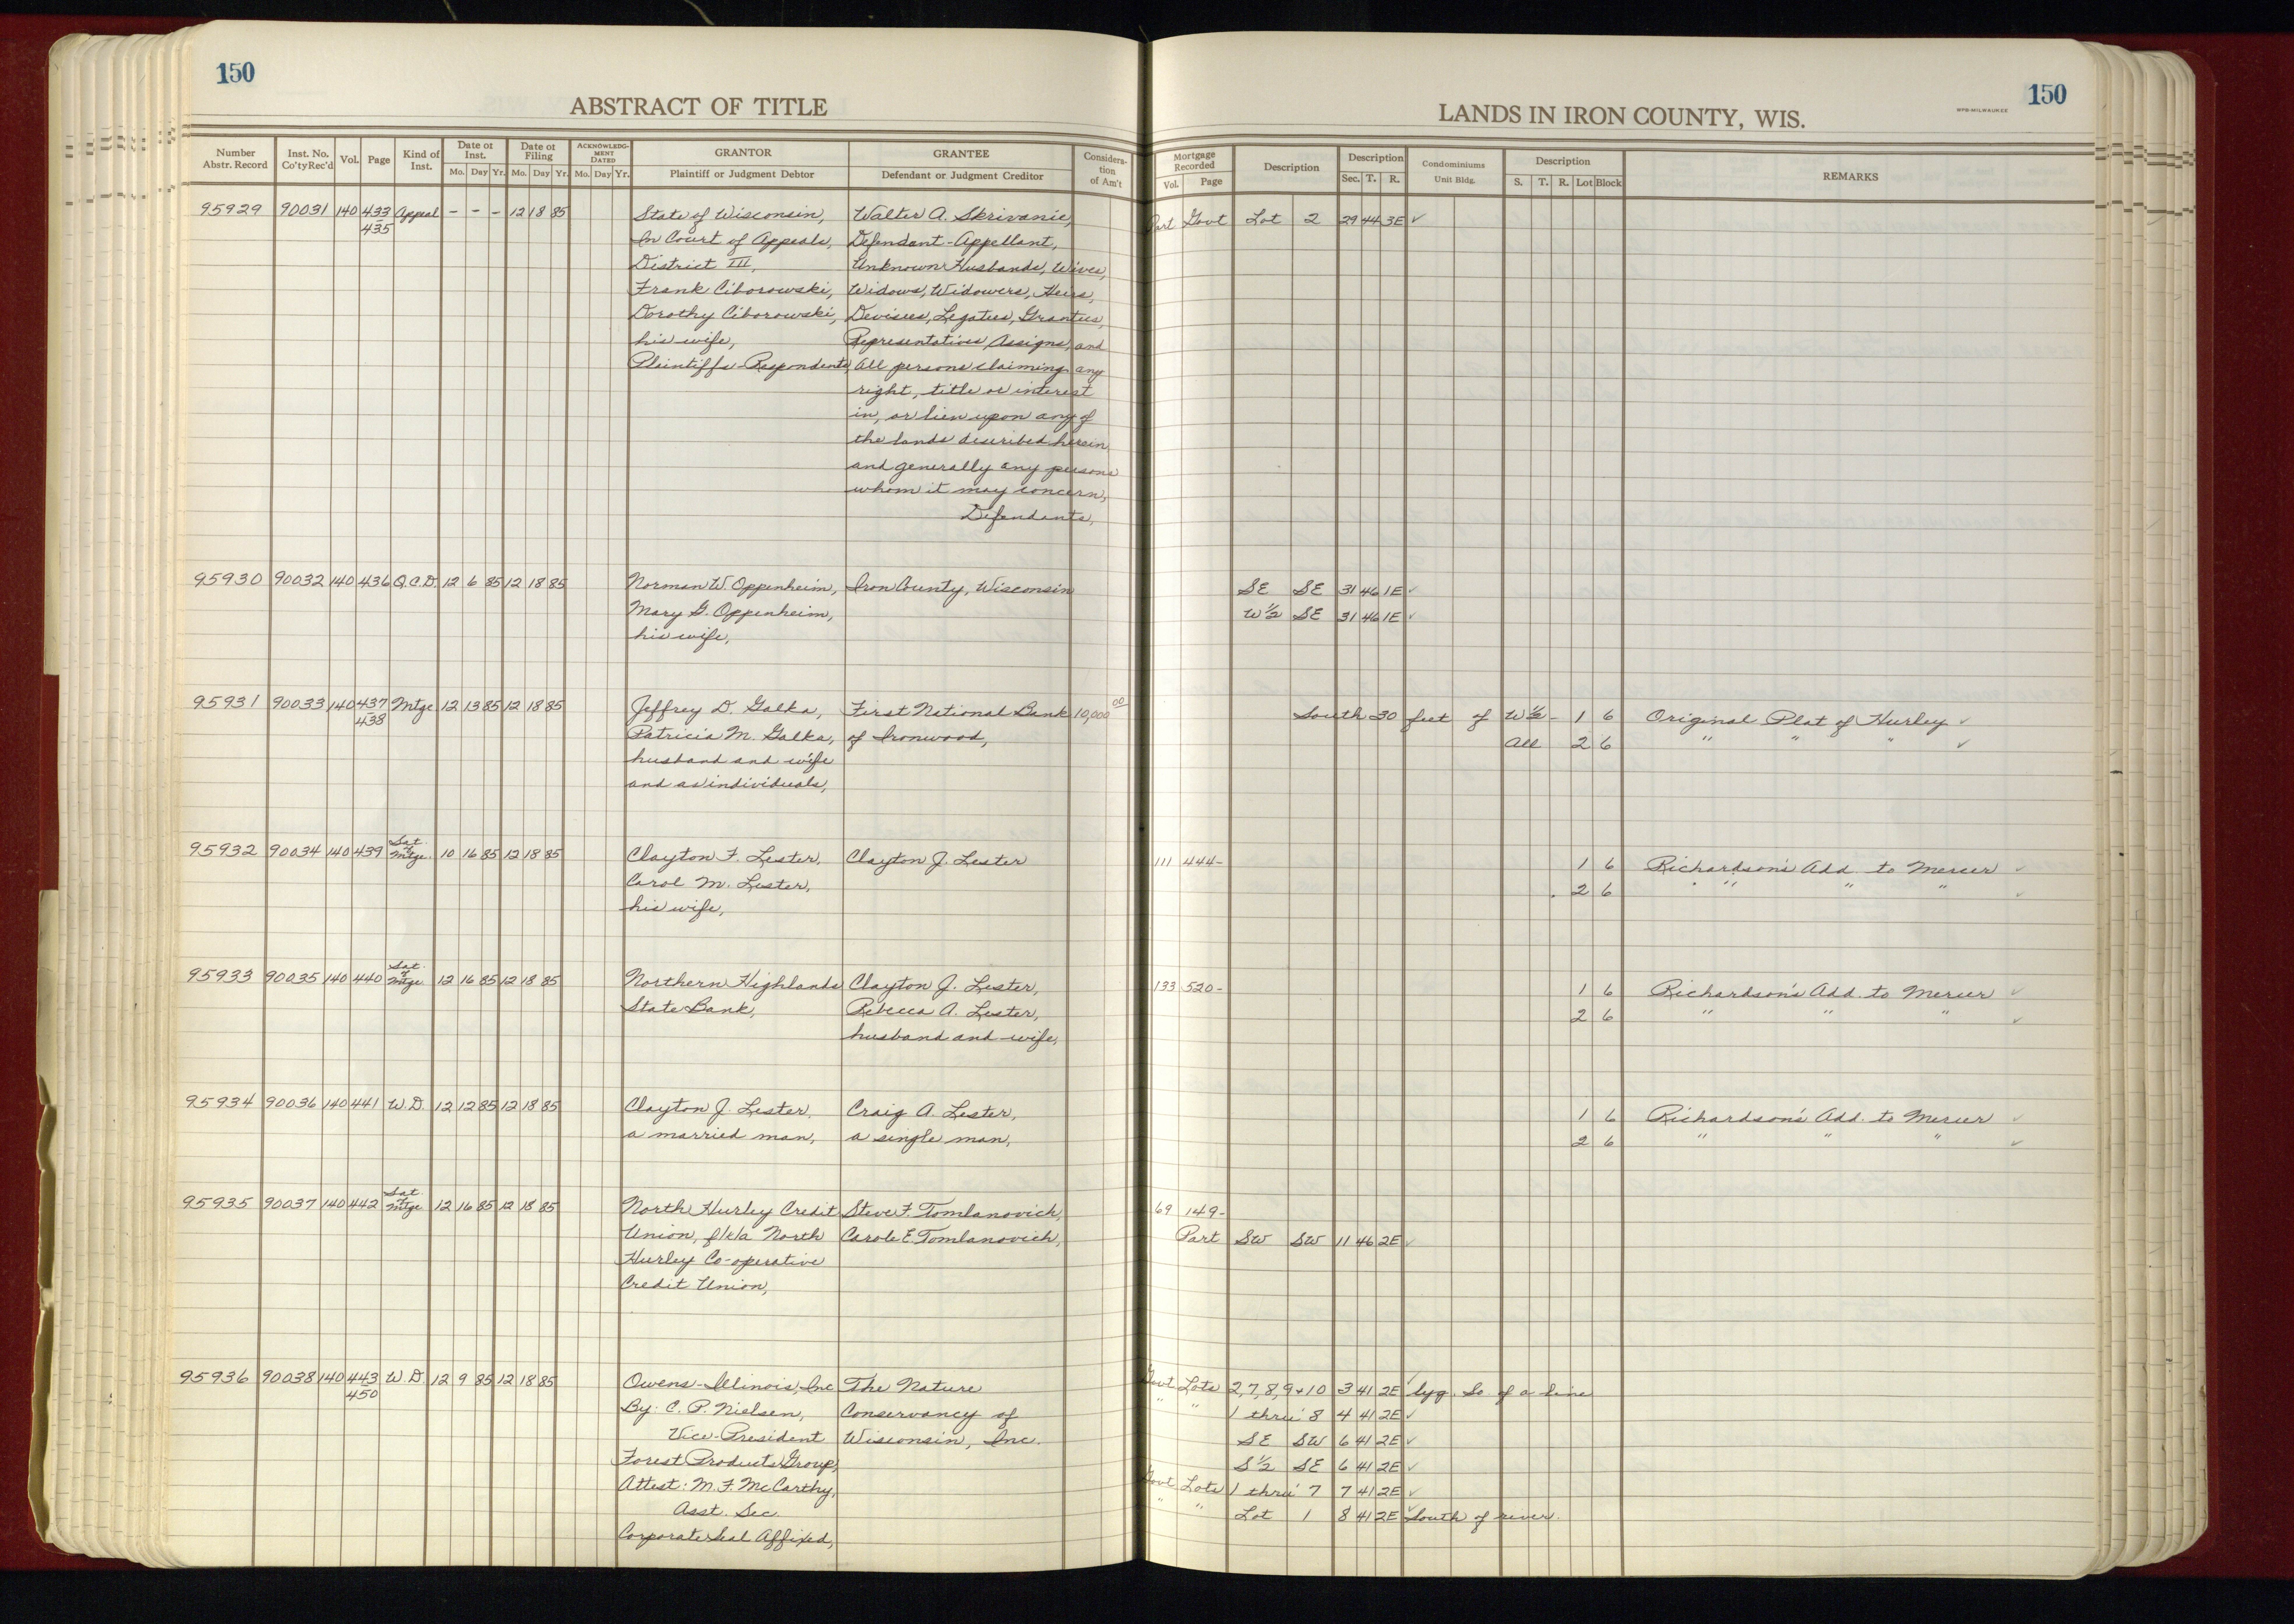 150
ABSTRACT OF TITLE
Number Abstr. Record
Inst. No. Co'ty Rec'd
Vol.
Page
Kind of Inst.
Date of Inst.
Mo. Day Yr.
Date of Filing
Mo. Day Yr.
ACKNOWLEDGMENT DATED
Mo. Day Yr.
GRANTOR
Plaintiff or Judgment Debtor
GRANTEE
Defendant or Judgment Creditor
Consideration of Am't
95929 90031 140 433 Appeal - - - 12 18 85 State of Wisconsin, Walter A. Skrivanie,
435 In Court of Appeals, Defendant-Appellant,
District III, Unknown Husbands, Wives,
Frank Ciborowski, Widows, Widowers, Heirs,
Dorothy Ciborowski, Devisees, Legatees, Grantees,
his wife, Representatives, Assigns, and
Plaintiffs-Respondents, all persons claiming any
right, title or interest
in, or lien upon any of
the lands described herein
and generally any persons
whom it may concern,
Defendants,
95930 90032 140 436 Q.C.D. 12 6 85 12 18 85 Norman W. Oppenheim, Iron County, Wisconsin
Mary G. Oppenheim,
his wife,
95931 90033 140 437 Mtge 12 13 85 12 18 85 Jeffrey D. Galka, First National Bank 10,000 00
438 Patricia M. Galka, of Ironwood,
husband and wife
and as individuals,
95932 90034 140 439 Sat. of Mtge. 10 16 85 12 18 85 Clayton F. Lester, Clayton J. Lester
Carol M. Lester,
his wife,
95933 90035 140 440 Sat. of Mtge 12 16 85 12 18 85 Northern Highlands Clayton J. Lester,
State Bank, Rebecca A. Lester,
husband and wife,
95934 90036 140 441 W.D. 12 12 85 12 18 85 Clayton J. Lester, Craig A. Lester,
a married man, a single man,
95935 90037 140 442 Sat. of Mtge 12 16 85 12 18 85 North Hurley Credit Steve F. Tomlanovich,
Union, f/k/a North Carole E. Tomlanovich,
Hurley Co-operative
Credit Union,
95936 90038 140 443 W.D. 12 9 85 12 18 85 Owens-Illinois, Inc The Nature
450 By: C. P. Nielsen, Conservancy of
Vice-President Wisconsin, Inc.
Forest Products Group,
Attest: M. F. McCarthy,
Asst. Sec.
Corporate Seal Affixed,
150
WPB-MILWAUKEE
LANDS IN IRON COUNTY, WIS.
Mortgage Recorded
Vol. Page
Description
Description
Sec. T. R.
Condominiums
Unit Bldg.
Description
S. T. R. Lot Block
REMARKS
Part Govt Lot 2 29 44 3E ✓
SE SE 31 46 1E ✓
W½ SE 31 46 1E ✓
South 30 feet of W½ - 1 6 Original Plat of Hurley ✓
All 2 6 " " " ✓
111 444- 1 6 Richardson's Add. to Mercer ✓
2 6 " " " ✓
133 520- 1 6 Richardson's Add. to Mercer ✓
2 6 " " " ✓
1 6 Richardson's Add. to Mercer ✓
2 6 " " " ✓
69 149-
Part SW SW 11 46 2E ✓
Govt Lots 2,7,8,9+10 3 41 2E ✓ lyg. So. of a line
" " 1 thru 8 4 41 2E ✓
SE SW 6 41 2E ✓
S½ SE 6 41 2E ✓
Govt Lots 1 thru 7 7 41 2E ✓
" " Lot 1 8 41 2E ✓ South of river.